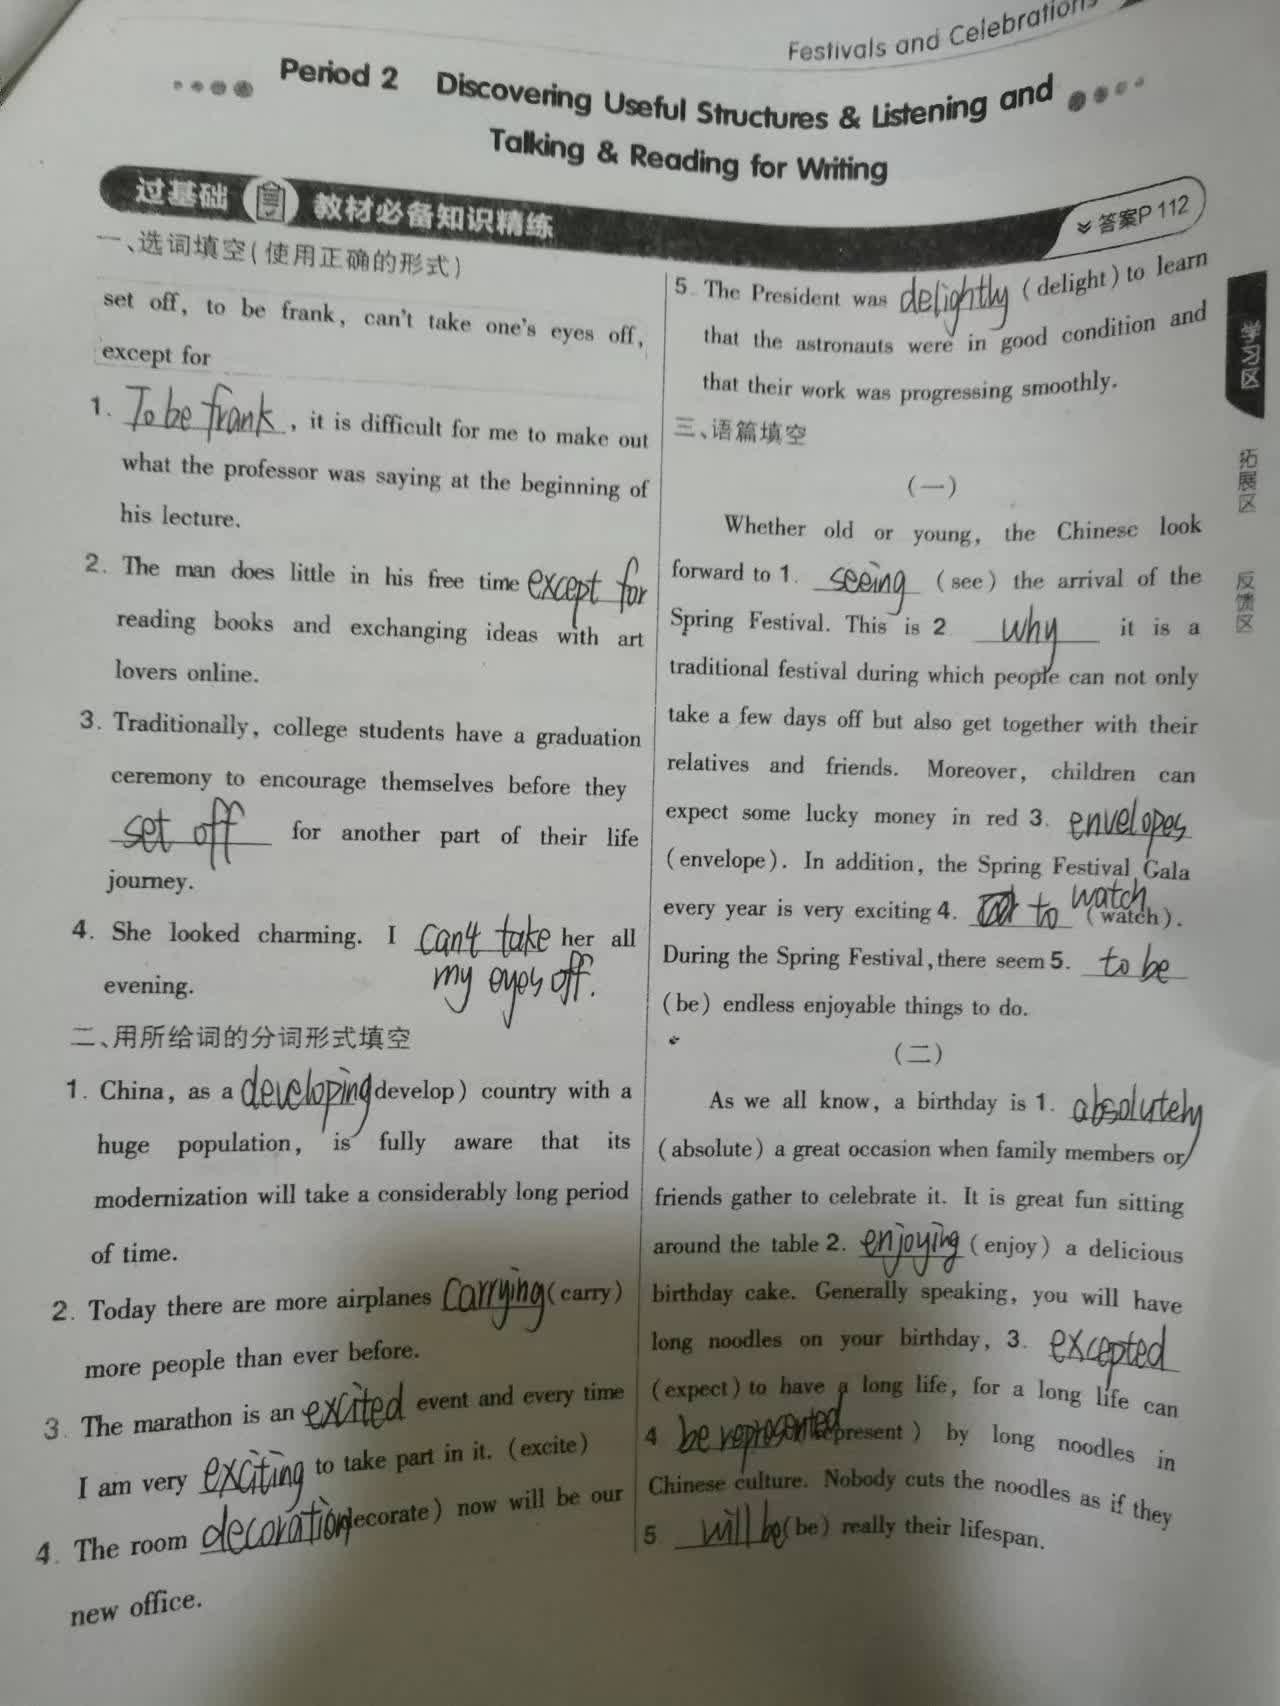 Festivals and Celebrations
Period 2 Discovering Useful Structures & Listening and
Talking & Reading for Writing
过基础 教材必备知识精练
答案P 112
一、选词填空(使用正确的形式)
set off, to be frank, can't take one's eyes off,
except for
1. To be frank, it is difficult for me to make out
what the professor was saying at the beginning of
his lecture.
2. The man does little in his free time except for
reading books and exchanging ideas with art
lovers online.
3. Traditionally, college students have a graduation
ceremony to encourage themselves before they
set off for another part of their life
journey.
4. She looked charming. I can't take her all
my eyes off.
evening.
二、用所给词的分词形式填空
1. China, as a developing develop) country with a
huge population, is fully aware that its
modernization will take a considerably long period
of time.
2. Today there are more airplanes carrying (carry)
more people than ever before.
3. The marathon is an excited event and every time
I am very exciting to take part in it. (excite)
4. The room decoration decorate) now will be our
new office.
5. The President was delightly (delight) to learn
that the astronauts were in good condition and
that their work was progressing smoothly.
三、语篇填空
(一)
Whether old or young, the Chinese look
forward to 1. seeing (see) the arrival of the
Spring Festival. This is 2 why it is a
traditional festival during which people can not only
take a few days off but also get together with their
relatives and friends. Moreover, children can
expect some lucky money in red 3. envelopes
(envelope). In addition, the Spring Festival Gala
every year is very exciting 4. to watch (watch).
During the Spring Festival, there seem 5. to be
(be) endless enjoyable things to do.
(二)
As we all know, a birthday is 1. absolutely
(absolute) a great occasion when family members or
friends gather to celebrate it. It is great fun sitting
around the table 2. enjoying (enjoy) a delicious
birthday cake. Generally speaking, you will have
long noodles on your birthday, 3. excepted
(expect) to have a long life, for a long life can
4 be represented epresent) by long noodles in
Chinese culture. Nobody cuts the noodles as if they
5 will be (be) really their lifespan.
学习区
拓展区
反馈区